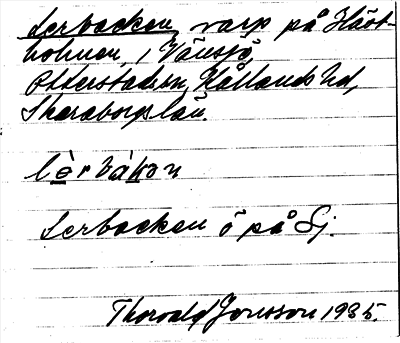 Lerbacken, varp på Häst-
holmen, i Vänsjö,
Otterstads sn, Kållands hd,
Skaraborgs län.
lèrbák̲o̲n
Lerbacken ö på Sj.
Thorvald Jonsson 1935.